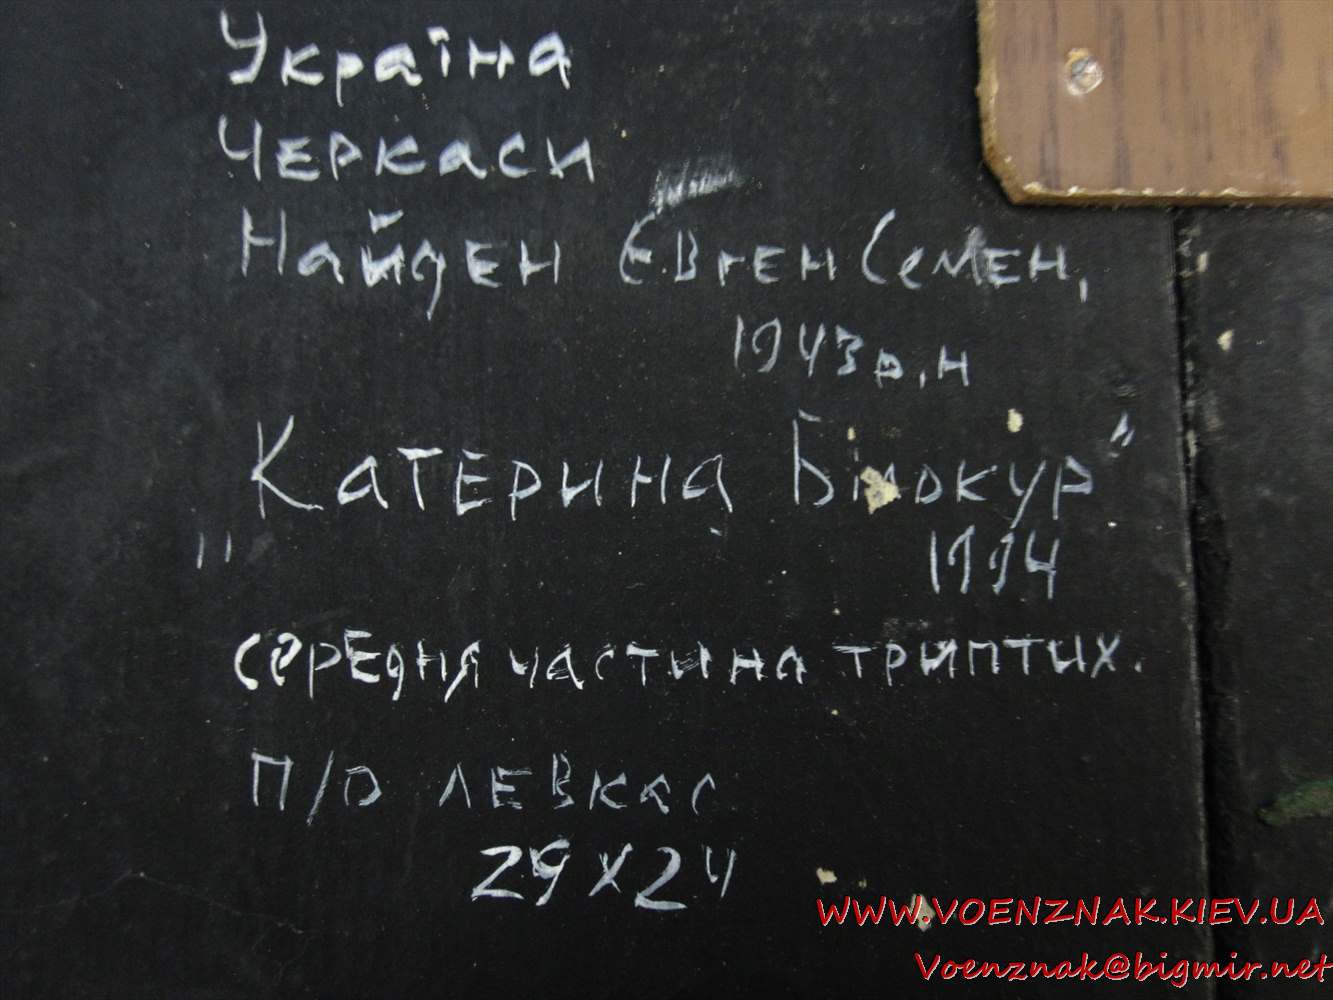 Україна
Черкаси
Найден Євген Семен,
1943 р.н
"Катерина Білокур"
1994
середня частина триптих.
П/О ЛЕВКАС
29х24
WWW.VOENZNAK.KIEV.UA
Voenznak@bigmir.net